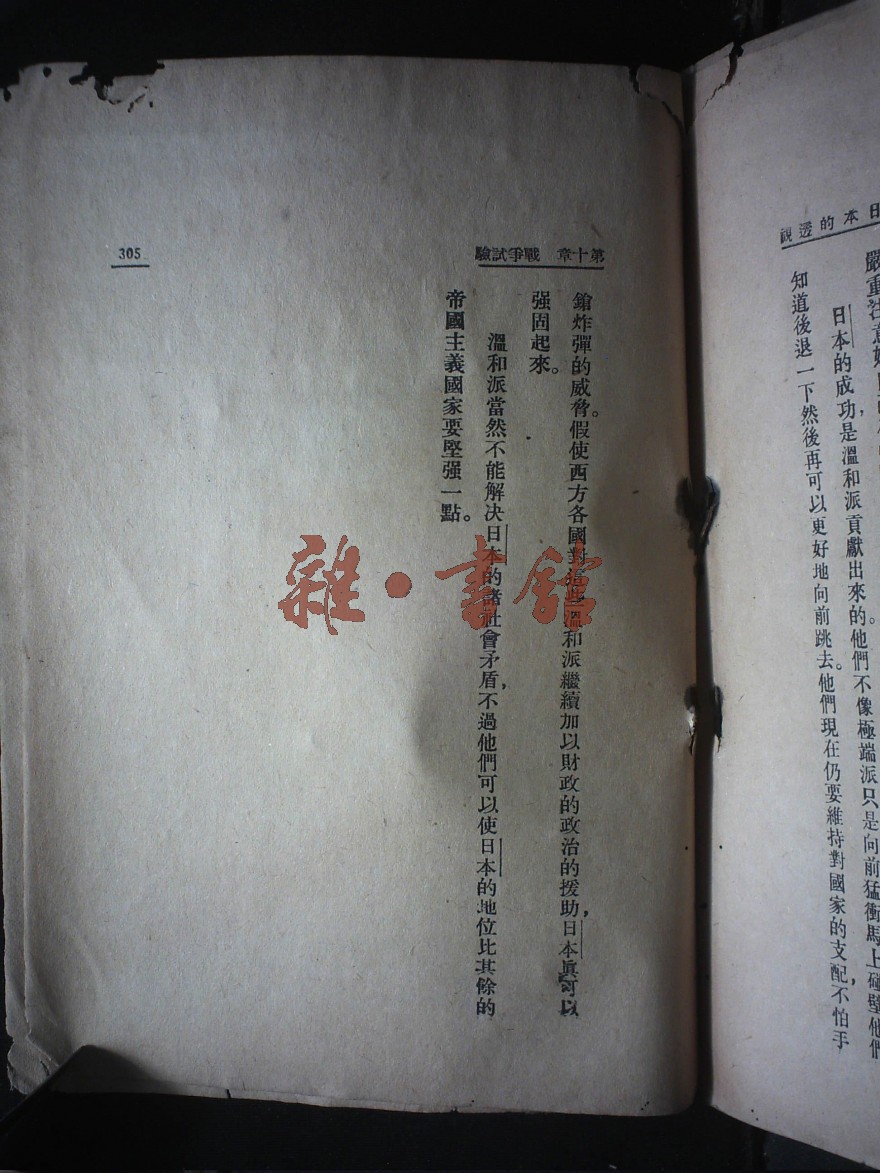 日本的透視
嚴重注意
日本的成功,是溫和派貢獻出來的。他們不像極端派只是向前猛衝,馬上碰壁他們
知道後退一下然後再可以更好地向前跳去。他們現在仍要維持對國家的支配,不怕手
第十章 戰爭試驗
鎗炸彈的威脅。假使西方各國對這些溫和派繼續加以財政的政治的援助,日本眞可以
强固起來。
溫和派當然不能解決日本的諸社會矛盾,不過他們可以使日本的地位比其餘的
帝國主義國家要堅强一點。
305
雜·書館